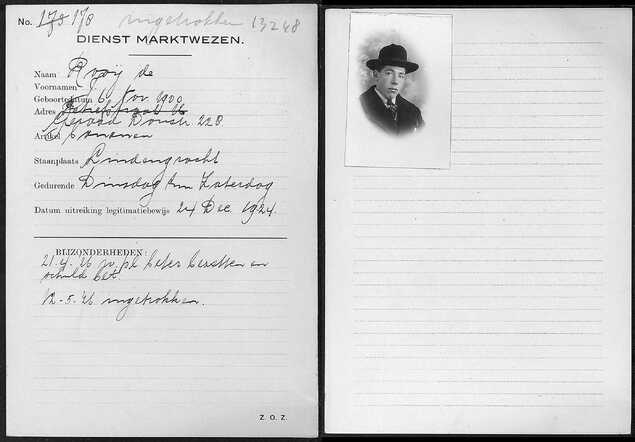 No. 178 178 ingetrokken 13248
DIENST MARKTWEZEN.
Naam Rooij de
Voornamen J.
Geboortedatum 6 Nov. 1900
Adres
Gerard Doustr. 228
Artikel bananen
Staanplaats Lindengracht
Gedurende Dinsdag t/m Zaterdag
Datum uitreiking legitimatiebewijs 24 Dec. 1924.
BIJZONDERHEDEN:
21.4.26 en
schuld bet.
12-5.26 ingetrokken.
Z. O. Z.